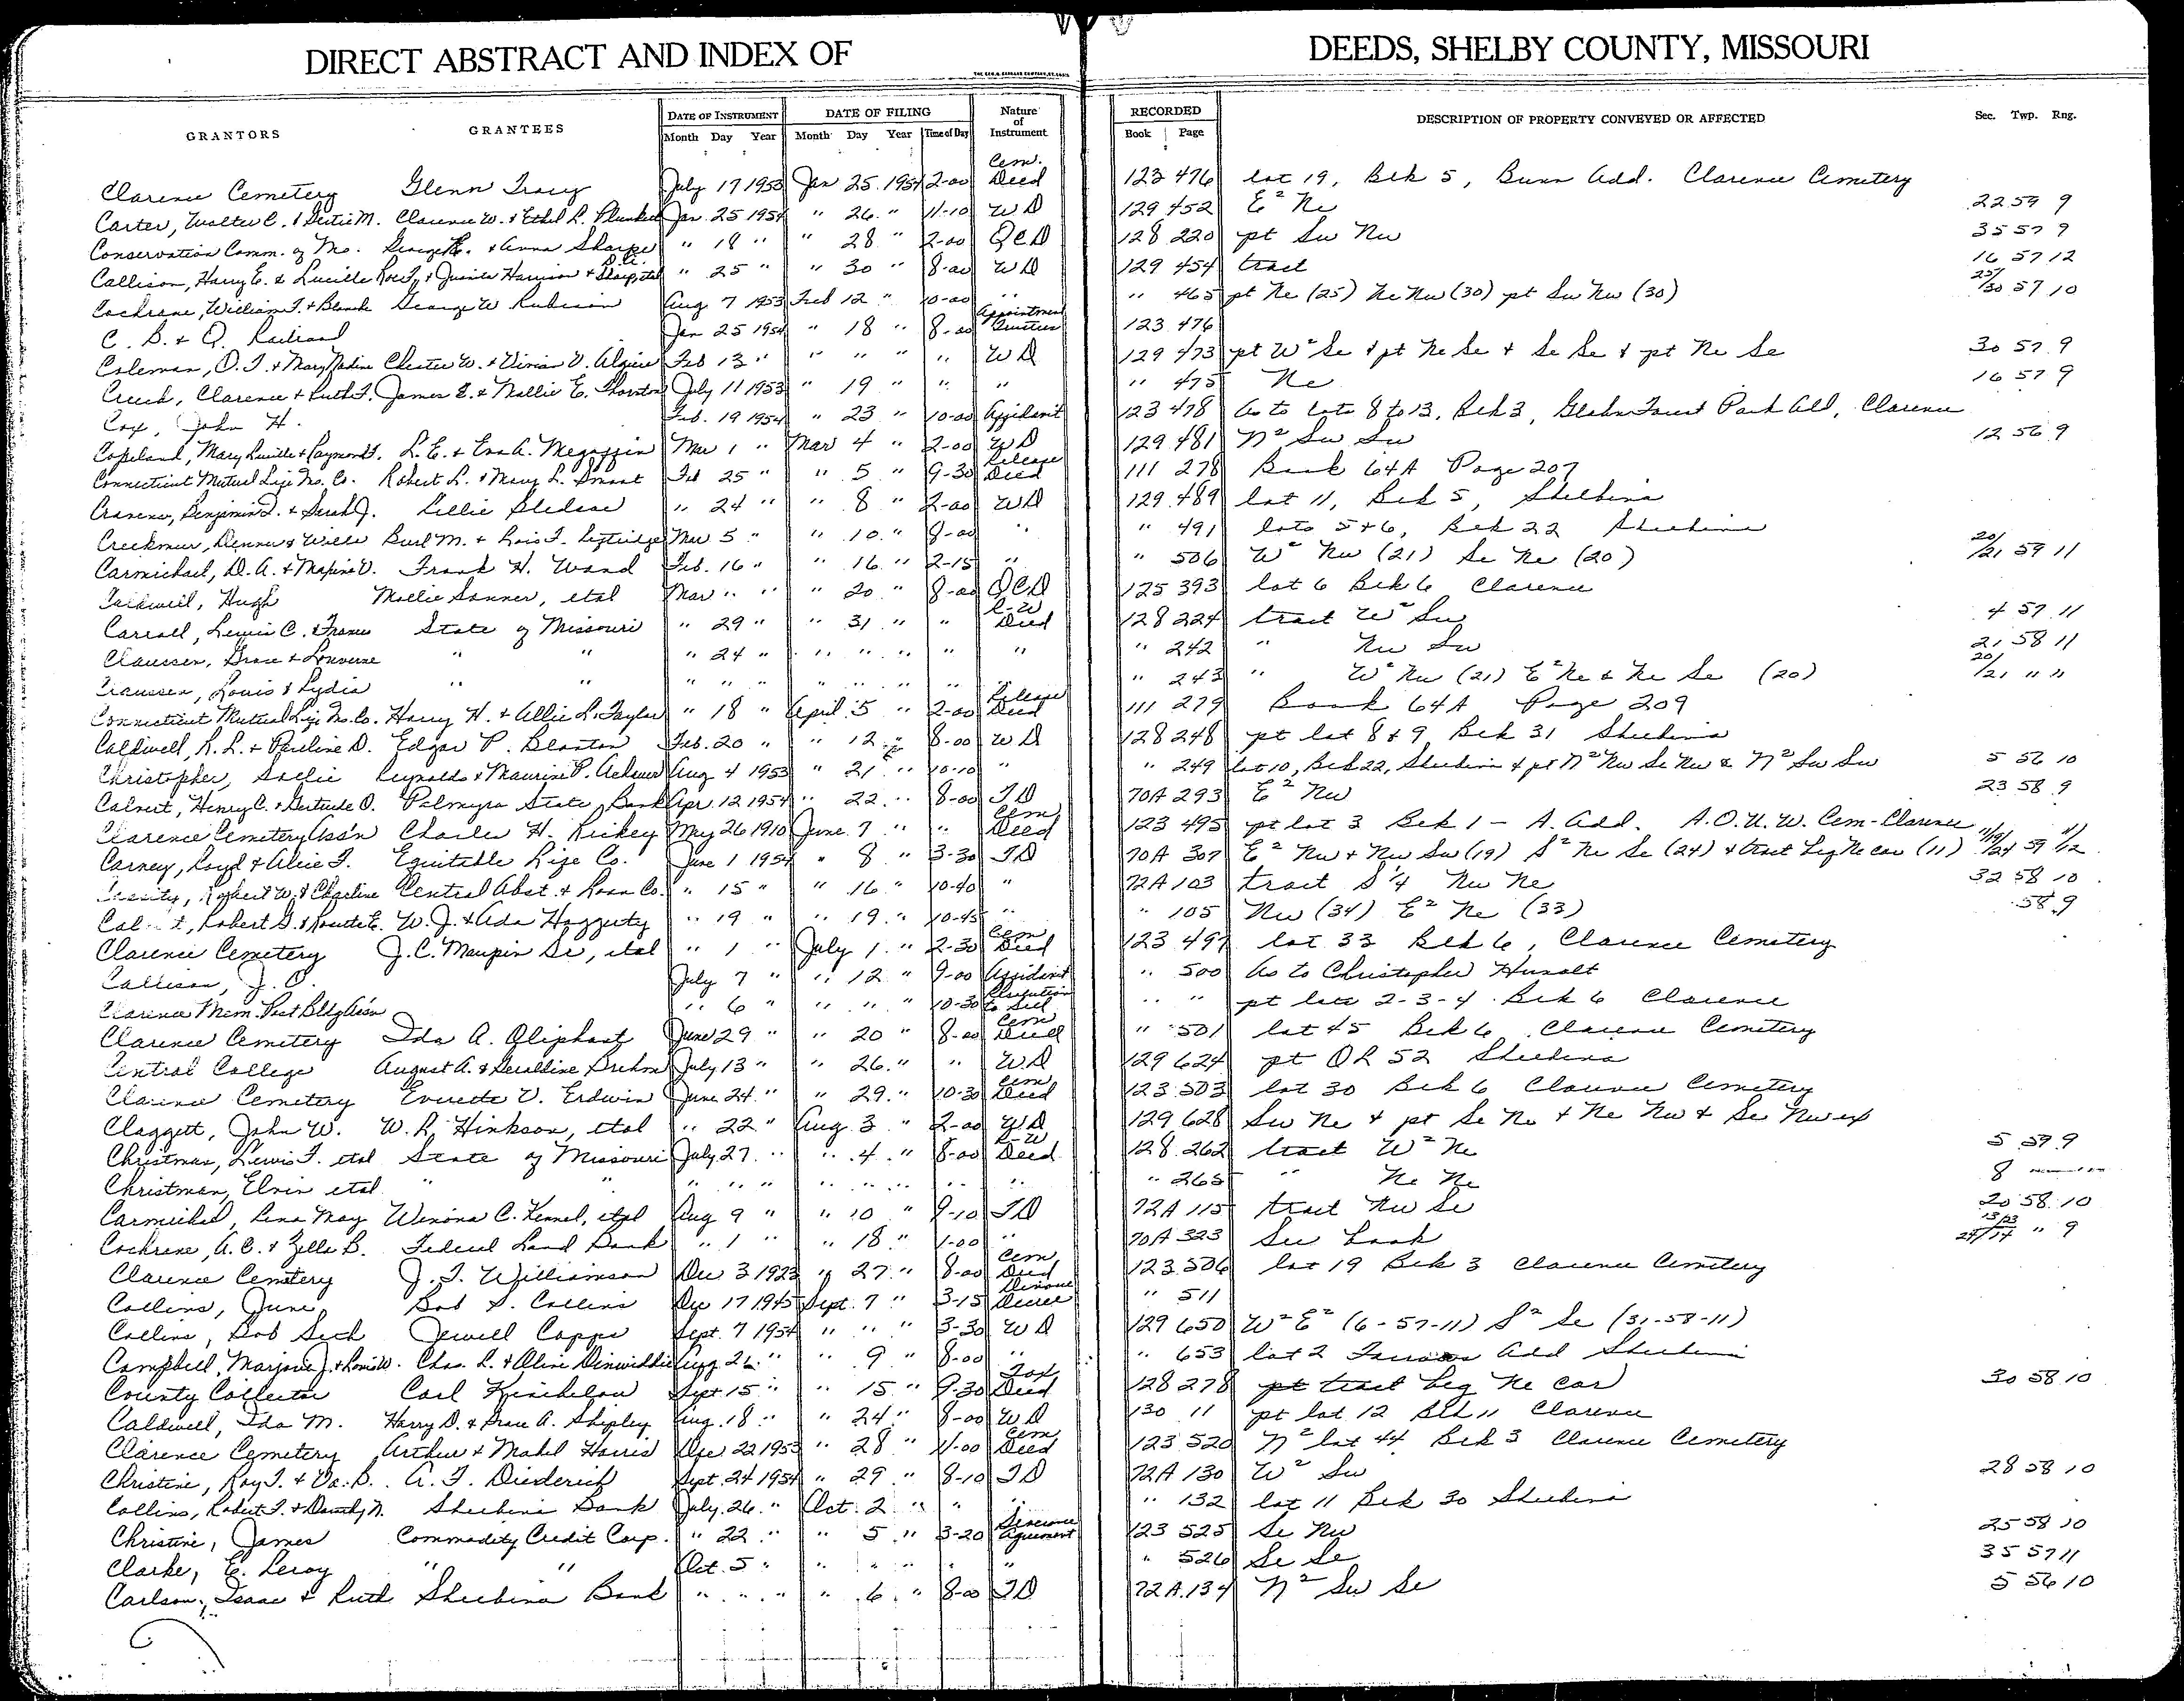 DIRECT ABSTRACT AND INDEX OF DEEDS, SHELBY COUNTY, MISSOURI
GRANTORS GRANTEES DATE OF INSTRUMENT DATE OF FILING Nature of Instrument RECORDED DESCRIPTION OF PROPERTY CONVEYED OR AFFECTED Sec. Twp. Rng.
Month Day Year Month Day Year Time of Day Book Page
Clarence Cemetery Glenn Tracy July 17 1953 Jan 25 1954 2-00 Cem. Deed 123 476 lot 19, Blk 5, Bunn Add. Clarence Cemetery
Carter, Walter C. & M. Clarence W. & Ethel L. Plunkett Jan. 25 1954 " 26 " 11-10 WD 129 452 E² Ne 22 59 9
Conservation Comm. of Mo. George E. & Anna Sharpe " 18 " " 28 " 2-00 QCD 128 220 pt Sw Nw 35 57 9
Callison, Harry E. & Lucille Roy & Juanita Harrison & etal " 25 " " 30 " 8-00 WD 129 454 tract 16 57 12
Cochrane, William T. & Blanch George W Rubison Aug 7 1953 Feb 12 " 10-00 " " 465 pt Ne (25) Ne Nw (30) pt Sw Nw (30) 25/30 57 10
C. B. & Q. Railroad Jan 25 1954 " 18 " 8-00 Appointment Trustees 123 476
Coleman, O. T. & Mary Nadine Chester W. & Vivian V. Feb 13 " " " " " WD 129 473 pt W² Se & pt Ne Se & Se Se & pt Ne Se 30 57 9
Clarence & Ruth F. James E. & Mollie E. Thornton July 11 1953 " 19 " " " " 475 Ne 16 57 9
Cox, John H. Feb. 19 1954 " 23 " 10-00 Affidavit 123 478 As to lots 8 to 13, Blk 3, Park Add, Clarence
Copeland, Mary Lucille & Raymond L. E. & Eva A. Megaffin Mar 1 " Mar 4 " 2-00 WD 129 481 N² Sw Sw 12 56 9
Connecticut Mutual Life Ins. Co. Robert L. & Mary L. Feb 25 " " 5 " 9-30 Release Deed 111 278 Book 64A Page 207
Cravens, Benjamin D. & Sarah J. Lillie Bledsoe " 24 " " 8 " 2-00 WD 129 489 lot 11, Blk 5, Shelbina
Creekmur, & Burl M. & Lois F. Mar 5 " " 10 " 8-00 " " 491 lots 5 & 6, Blk 22 Shelbina
Carmichael, D. A. & Maxine V. Frank H. Wand Feb. 16 " " 16 " 2-15 " " 506 W² Nw (21) Se Ne (20) 20/21 59 11
Caldwell, Hugh Mollie Sanner, etal Mar " " " 20 " 8-00 QCD 125 393 lot 6 Blk 6 Clarence
Carroll, Lewis C. & State of Missouri " 29 " " 31 " " R-W Deed 128 224 tract W² Sw 4 57 11
Claussen, Grace & Louverne " " " 24 " " " " " " " 242 " Nw Sw 21 58 11
Claussen, Louis & Lydia " " " " " " " " " " " 243 " W² Nw (21) E² Ne & Ne Se (20) 20/21 " "
Connecticut Mutual Life Ins. Co. Harry H. & Allie L. Taylor " 18 " April 5 " 2-00 Release Deed 111 279 Book 64A Page 209
Caldwell, R. L. & Pauline D. Edgar P. Blanton Feb. 20 " " 12 " 8-00 WD 128 248 pt lot 8 & 9 Blk 31 Shelbina
Christopher, Sallie Reynolds & Maurine P. Aug 4 1953 " 21 " 10-10 " " 249 lot 10, Blk 22, Shelbina & pt N² Nw Se Nw & N² Sw Sw 5 56 10
Calvert, Henry C. & Gertrude O. Palmyra State Bank Apr. 12 1954 " 22 " 8-00 TD 70A 293 E² Nw 23 58 9
Clarence Cemetery Ass'n Charles H. Rickey May 26 1910 June 7 " " Cem Deed 123 495 pt lot 3 Blk 1 - A. Add. A.O.U.W. Cem - Clarence
Carney, Loyd & Alice F. Equitable Life Co. June 1 1954 " 8 " 3-30 TD 70A 307 E² Nw & Nw Sw (19) S² Ne Se (24) & tract beg Ne cor (11) 11/19/24 59 11/12
Robert W. & Charline Central Abst. & Loan Co. " 15 " " 16 " 10-40 " 72A 103 tract S¼ Nw Ne 32 58 10
Robert G. & E. W. J. & Ada Haggerty " 19 " " 19 " 10-45 " " 105 Nw (34) E² Ne (33) 58 9
Clarence Cemetery J. C. Maupin Sr, etal " 1 " July 1 " 2-30 Cem Deed 123 497 lot 33 Blk 6, Clarence Cemetery
Callison, J. O. July 7 " " 12 " 9-00 Affidavit " 500 As to Christopher Hunolt
Clarence Mem. Post Bldg Ass'n " 6 " " " " 10-30 Resolution to Sell " " pt lots 2-3-4 Blk 6 Clarence
Clarence Cemetery Ida A. Oliphant June 29 " " 20 " 8-00 Cem Deed " 501 lot 45 Blk 6 Clarence Cemetery
Central College August A. & Geraldine July 13 " " 26 " " W.D 129 624 pt OL 52 Shelbina
Clarence Cemetery Everette V. Erdwin June 24 " " 29 " 10-30 Cem Deed 123 503 lot 30 Blk 6 Clarence Cemetery
Claggett, John W. W. R. Hinkson, etal " 22 " Aug 3 " 2-00 WD 129 628 Sw Ne & pt Se Ne & Ne Nw & Se Nw
Christman, Lewis F. etal State of Missouri July 27 " " 4 " 8-00 R-W Deed 128 262 tract W² Ne 5 59 9
Christman, Elvin etal " " " " " " " " " " " 265 " Ne Ne 8
Carmichel, Lena May Winona C. Kennel, etal Aug 9 " " 10 " 9-10 TD 72A 115 tract Nw Se 20 58 10
Cochrane, A. C. & Zella B. Federal Land Bank " 1 " " 18 " 1-00 " 70A 323 See book " 9
Clarence Cemetery J. T. Williamson Dec 3 1923 " 27 " 8-00 Cem Deed 123 506 lot 19 Blk 3 Clarence Cemetery
Collins, June Bob S. Collins Dec 17 1945 Sept. 7 " 3-15 Divorce Decree " 511
Collins, Bob Jewell Capps Sept. 7 1954 " " " 3-30 WD 129 650 W² E² (6-57-11) S² Se (31-58-11)
Campbell, Marjorie J. & W. Chas. L. & Aline Dinwiddie Aug 26 " " 9 " 8-00 " " 653 lot 2 Add Shelbina
County Collector Carl Kincheloe Sept 15 " " 15 " 9-30 Tax Deed 128 278 pt tract beg Ne cor 30 58 10
Caldwell, Ida M. Harry D. & Grace A. Shipley Aug. 18 " " 24 " 8-00 WD 130 11 pt lot 12 Blk 11 Clarence
Clarence Cemetery Arthur & Mabel Harris Dec 22 1953 " 28 " 11-00 Cem Deed 123 520 N² lot 44 Blk 3 Clarence Cemetery
Christine, Roy T. & Va. B. A. F. Diederich Sept. 24 1954 " 29 " 8-10 TD 72A 130 W² Sw 28 58 10
Collins, Robert F. & Dorothy N. Shelbina Bank July 26 " Oct. 2 " " " " 132 lot 11 Blk 30 Shelbina
Christine, James Commodity Credit Corp. " 22 " " 5 " 3-20 Severance Agreement 123 525 Se Nw 25 58 10
Clarke, E. Leroy " " Oct. 5 " " " " " " " 526 Se Se 35 57 11
Carlson, Isaac & Ruth Shelbina Bank " " " " 6 " 8-00 TD 72A 134 N² Sw Se 5 56 10